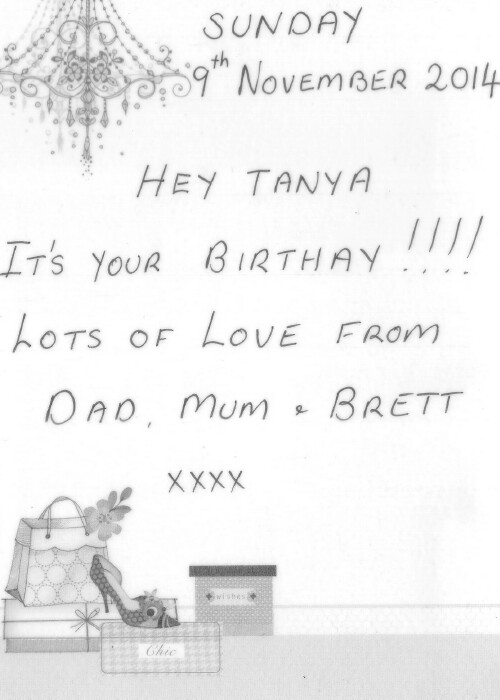 SUNDAY
9th NOVEMBER 2014
HEY TANYA
IT'S YOUR BIRTHAY !!!!
LOTS OF LOVE FROM
DAD, MUM & BRETT
XXXX
wishes
Chic